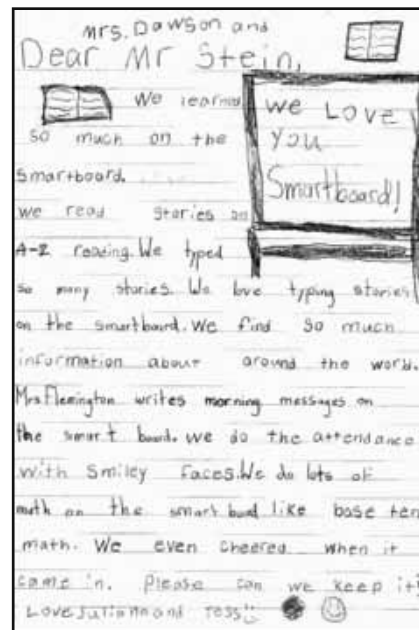 Mrs. Dawson and
Dear Mr Stein,
We learned
so much on the
smartboard.
We LOVE
you
Smartboard!
we read stories on
A-Z reading. We typed
so many stories. We love typing stories
on the smartboard. We find so much
information about around the world.
Mrs Flemington writes morning messages on
the smart board. we do the attendance
with smiley faces. We do lots of
math on the smart board like base ten
math. We even cheered when it
came in. Please can we keep it?
Love Juliann and Tess